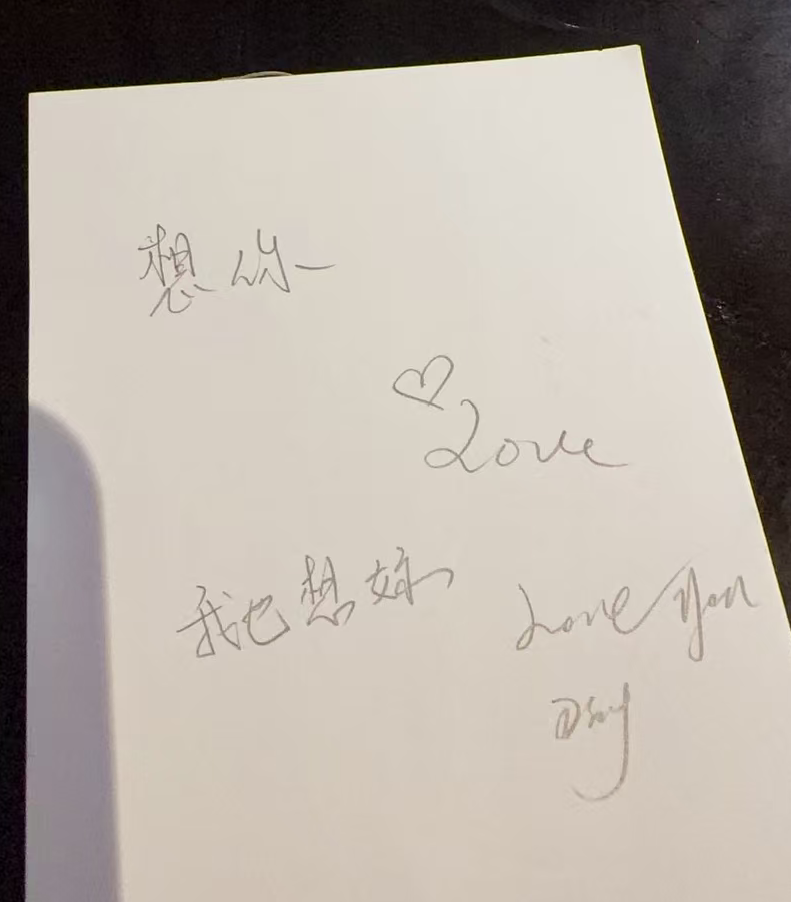 想你
♡
Love
我也想妳
Love you